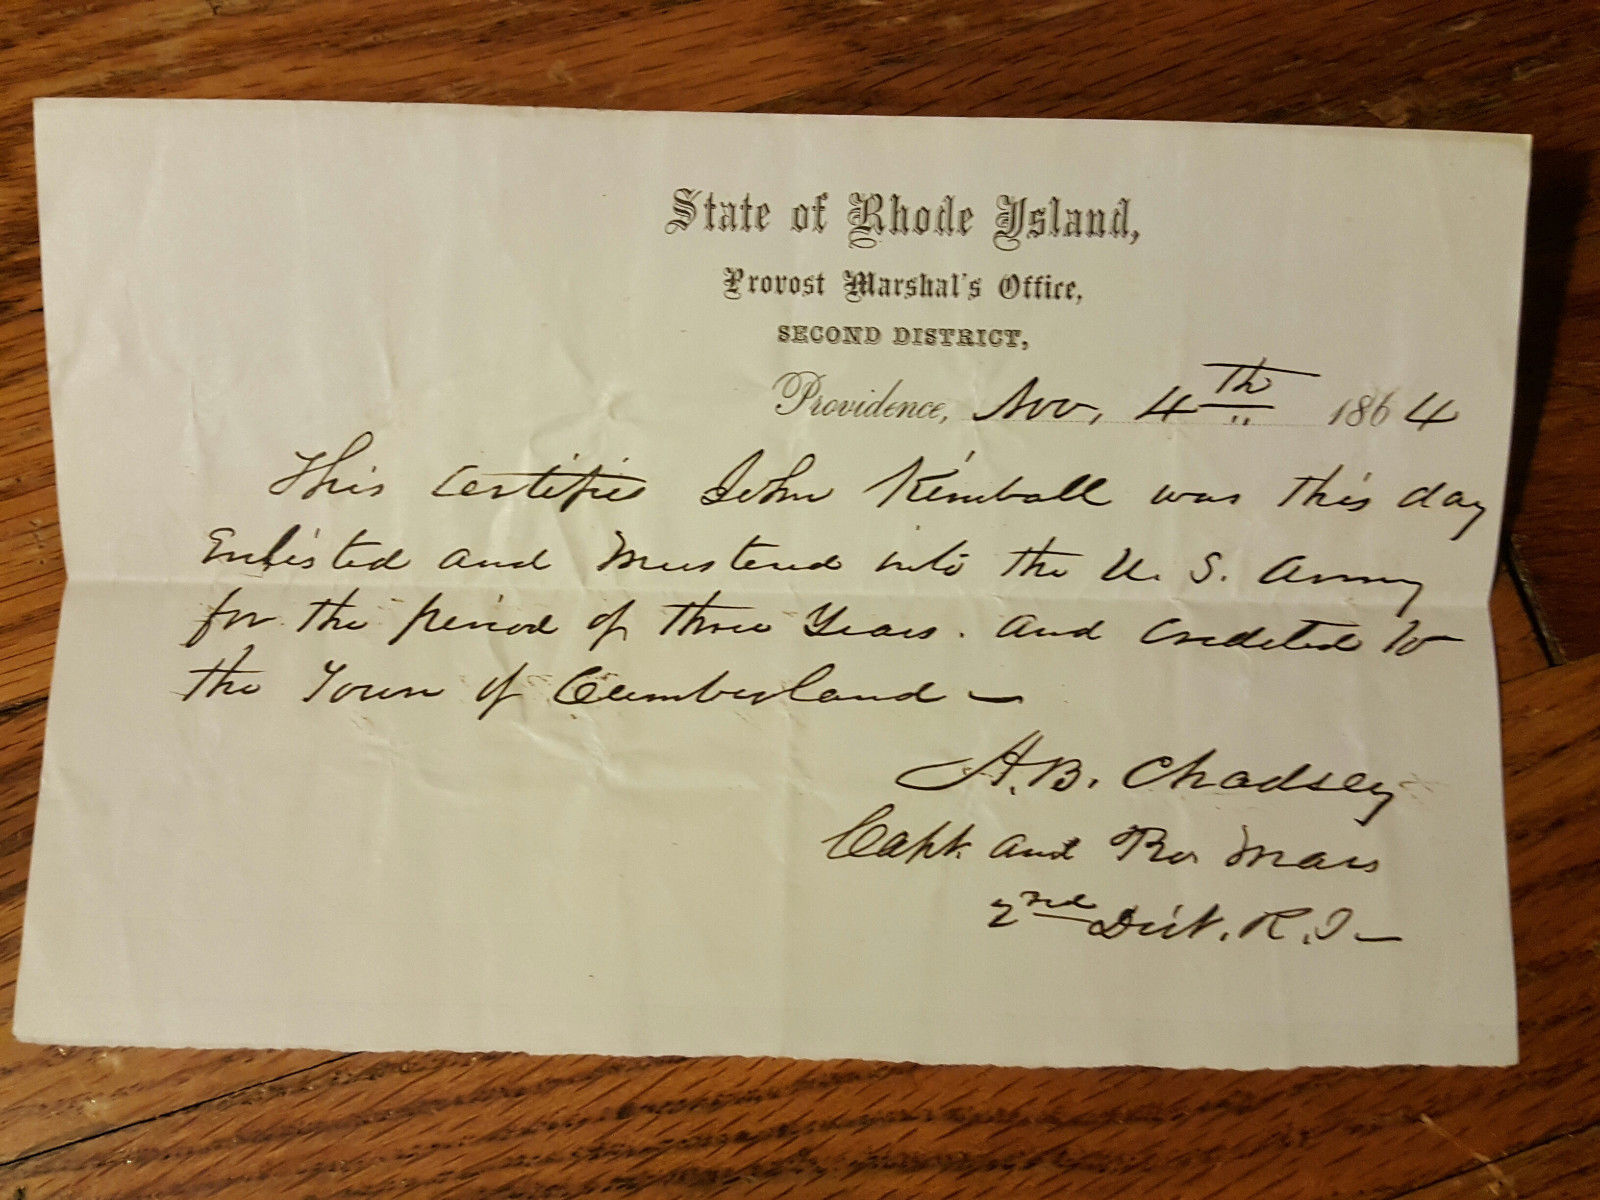 State of Rhode Island,
Provost Marshal's Office,
SECOND DISTRICT,
Providence, Nov, 4th 1864
This Certifies John Kimball was this day
Enlisted and Mustered into the U. S. Army
for the period of three Years. and Credited to
the Town of Cumberland —
A. B. Chadsey
Capt. and Pro Mars
2nd Dist. R. I —